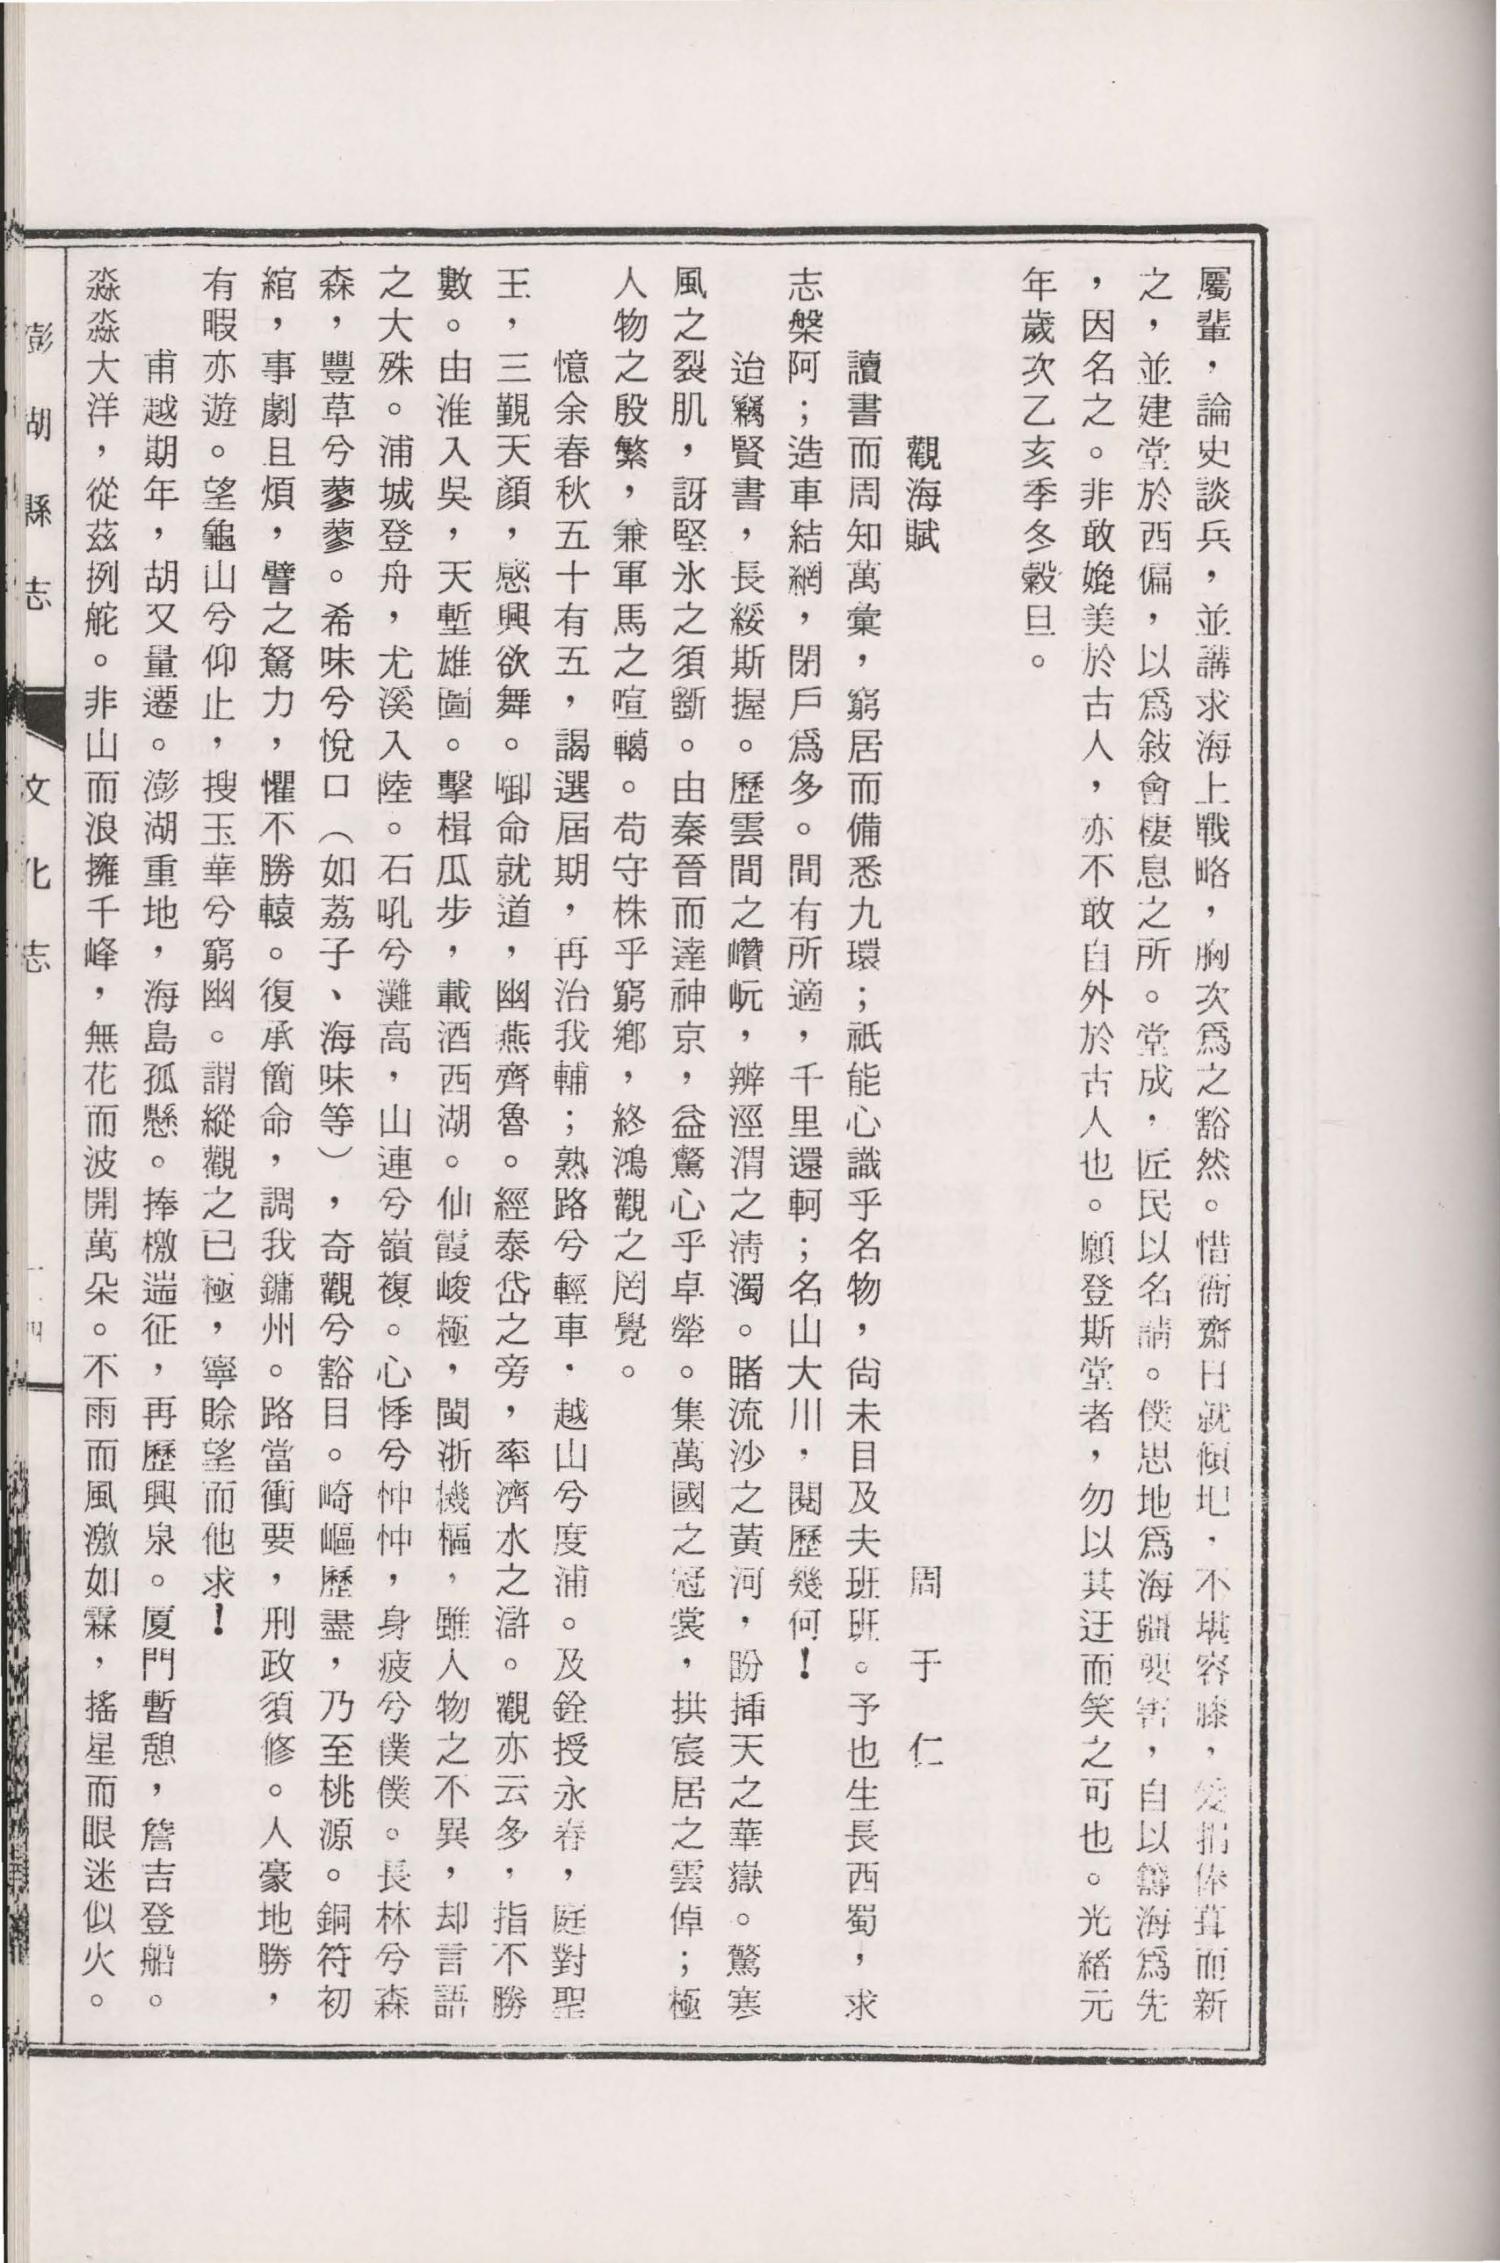 屬輩，論史談兵，並講求海上戰略，胸次爲之豁然。惜衙齋日就傾圯，不堪容膝，爰捐俸葺而新
之，並建堂於西偏，以爲敍會棲息之所。堂成，匠民以名請。僕思地爲海疆要害，自以籌海爲先
，因名之。非敢媲美於古人，亦不敢自外於古人也。願登斯堂者，勿以其迂而笑之可也。光緒元
年歲次乙亥季冬穀旦。
觀海賦　周于仁
讀書而周知萬彙，窮居而備悉九環；祇能心識乎名物，尙未目及夫班班。予也生長西蜀，求
志槃阿；造車結網，閉戶爲多。間有所適，千里還軻；名山大川，閱歷幾何！
迨竊賢書，長綏斯握。歷雲間之巑岏，辨涇渭之淸濁。睹流沙之黃河，盼揷天之華嶽。驚寒
風之裂肌，訝堅氷之須斵。由秦晉而達神京，益驚心乎卓犖。集萬國之冠裳，拱宸居之雲倬；極
人物之殷繁，兼軍馬之喧轕。苟守株乎窮鄉，終鴻觀之罔覺。
憶余春秋五十有五，謁選屆期，再治我輔；熟路兮輕車．越山兮度浦。及銓授永春，庭對聖
王，三覲天顏，感興欲舞。啣命就道，幽燕齊魯。經泰岱之旁，率濟水之滸。觀亦云多，指不勝
數。由淮入吳，天塹雄圖。擊楫瓜步，載酒西湖。仙霞峻極，閩浙機樞，雖人物之不異，却言語
之大殊。浦城登舟，尤溪入陸。石吼兮灘高，山連兮嶺複。心悸兮忡忡，身疲兮僕僕。長林兮森
森，豐草兮蓼蓼。希味兮悅口（如荔子、海味等），奇觀兮豁目。崎嶇歷盡，乃至桃源。銅符初
綰，事劇且煩，譬之駑力，懼不勝轅。復承簡命，調我鏞州。路當衝要，刑政須修。人豪地勝，
有暇亦遊。望龜山兮仰止，搜玉華兮窮幽。謂縱觀之已極，寧賒望而他求！
甫越期年，胡又量遷。澎湖重地，海島孤懸。捧檄遄征，再歷興泉。厦門暫憩，詹吉登船。
淼淼大洋，從茲捩舵。非山而浪擁千峰，無花而波開萬朵。不雨而風激如霖，搖星而眼迷似火。
澎湖縣志　文化志